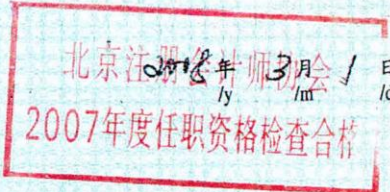 北京注册会计师协会
2008年 3月 1日
/y /m /d
2007年度任职资格检查合格